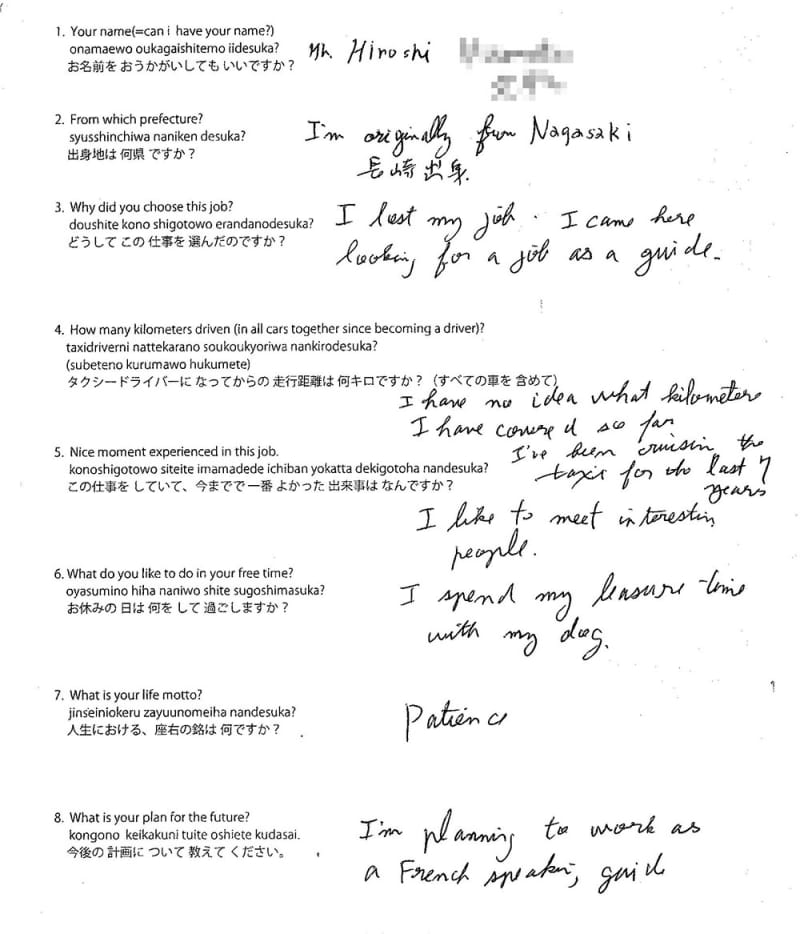 1. Your name(=can i have your name?)
onamaewo oukagaishitemo iidesuka?
お名前を おうかがいしても いいですか？
Mr. Hiroshi
2. From which prefecture?
syusshinchiwa naniken desuka?
出身地は 何県 ですか？
I'm originally from Nagasaki
長崎出身.
3. Why did you choose this job?
doushite kono shigotowo erandanodesuka?
どうして この 仕事を 選んだのですか？
I lost my job. I came here
looking for a job as a guide.
4. How many kilometers driven (in all cars together since becoming a driver)?
taxidriverni nattekarano soukoukyoriwa nankirodesuka?
(subeteno kurumawo hukumete)
タクシードライバーに なってからの 走行距離は 何キロですか？（すべての車を 含めて）
I have no idea what kilometers
I have covered so far
I've been cruising the
taxis for the last 7
years
5. Nice moment experienced in this job.
konoshigotowo siteite imamadede ichiban yokatta dekigotoha nandesuka?
この仕事を していて、今までで 一番 よかった 出来事は なんですか？
I like to meet interesting
people.
6. What do you like to do in your free time?
oyasumino hiha naniwo shite sugoshimasuka?
お休みの 日は 何を して 過ごしますか？
I spend my leasure-time
with my dog.
7. What is your life motto?
jinseiniokeru zayuunomeiha nandesuka?
人生における、座右の銘は 何ですか？
Patience
8. What is your plan for the future?
kongono keikakuni tuite oshiete kudasai.
今後の 計画に ついて 教えて ください。
I'm planning to work as
a French speaking guide